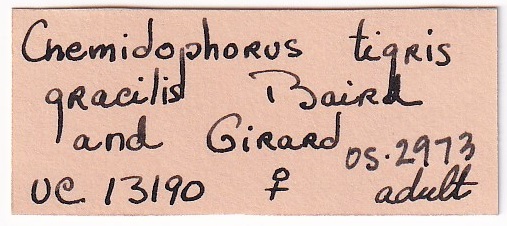 Cnemidophorus tigris
gracilis Baird
and Girard
OS.2973
UC 13190 ♀ adult